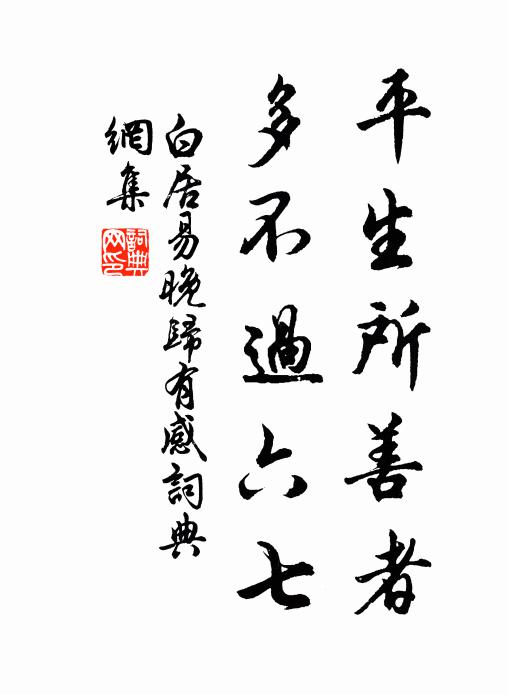 平生所善者
多不過六七
白居易晚歸有感詞典
網集
詞典
网印